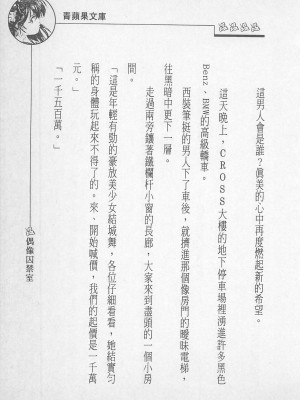 青蘋果文庫
這男人會是誰？眞美的心中再度燃起新的希望。
這天晚上，CROSS大樓的地下停車場裡湧進許多黑色
Benz、BMW的高級轎車。
西裝筆挺的男人下了車後，就擠進那個像房門的曖昧電梯，
往黑暗中更下一層。
走過兩旁鑲著鐵欄杆小窗的長廊，大家來到盡頭的一個小房
間。
「這是年輕有勁的豪放美少女結城舞，各位仔細看看，她結實勻
稱的身體玩起來不得了的。來，開始喊價，我們的起價是一千萬
元。」
「一千五百萬。」
偶像囚禁室